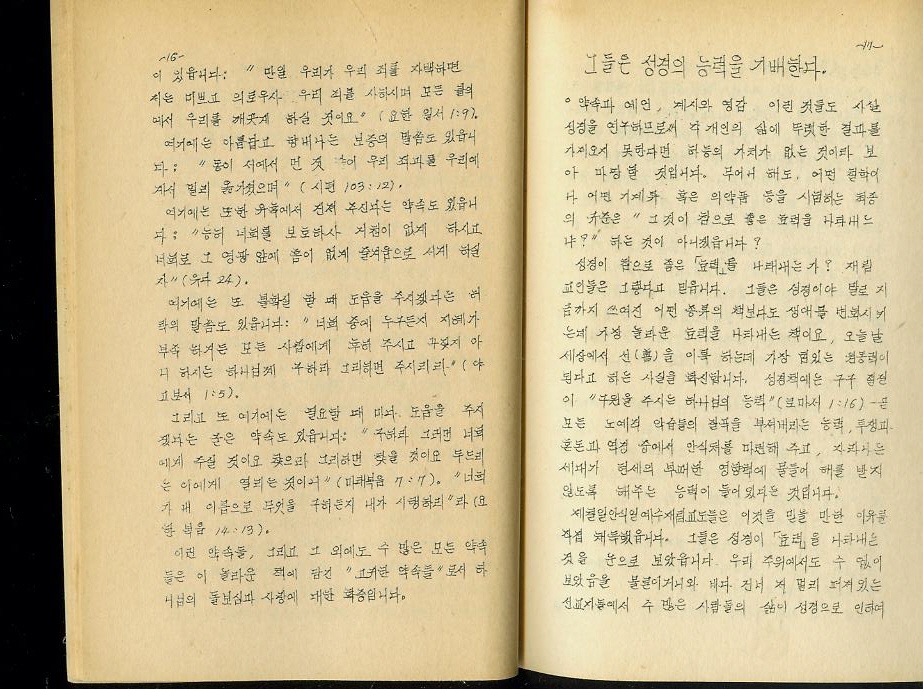 -16-
이 있읍니다: " 만일 우리가 우리 죄를 자백하면
저는 미쁘고 의로우사 우리 죄를 사하시며 모든 불의
에서 우리를 깨끗케 하실 것이요" (요한 일서 1:9).
여기에는 아름답고 향내나는 보증의 말씀도 있읍니
다: " 동이 서에서 먼 것 같이 우리 죄과를 우리에
게서 멀리 옮기셨으며" (시편 103:12).
여기에는 또한 유혹에서 건져 주신다는 약속도 있읍니
다: " 능히 너희를 보호하사 거침이 없게 하시고
너희로 그 영광 앞에 흠이 없게 즐거움으로 서게 하실
자" (유다 24).
여기에는 또 불확실 할 때 도움을 주시겠다는 허
락의 말씀도 있읍니다: " 너희 중에 누구든지 지혜가
부족 하거든 모든 사람에게 후히 주시고 꾸짖지 아
니 하시는 하나님께 구하라 그리하면 주시리라" (야
고보서 1:5).
그리고 또 여기에는 필요할 때 마다 도움을 주시
겠다는 굳은 약속도 있읍니다: " 구하라 그러면 너희
에게 주실 것이요 찾으라 그리하면 찾을 것이요 두드리
는 이에게 열리는 것이니" (마태복음 7:7). "너희
가 내 이름으로 무엇을 구하든지 내가 시행하리"라 (요
한 복음 14:13).
이런 약속들, 그리고 그 외에도 수 많은 모든 약속
들은 이 놀라운 책에 담긴 "고귀한 약속들"로서 하
나님의 돌보심과 사랑에 대한 확증입니다.
-17-
그들은 성경의 능력을 기뻐한다.
약속과 예언, 계시와 영감 이런 것들도 사실
성경을 연구하므로써 각 개인의 삶에 뚜렷한 결과를
가져오지 못한다면 하등의 가치가 없는 것이라 보
아 마땅할 것입니다. 부어서 해도, 어떤 철학이
나 어떤 기계와 혹은 의약품 등을 시험하는 최종
의 기준은 " 그것이 참으로 좋은 효력을 나타내느
냐?" 하는 것이 아니겠읍니까?
성경이 참으로 좋은 「효력」를 나타내는가? 재림
교인들은 그렇다고 믿읍니다. 그들은 성경이야 말로 지
금까지 쓰여진 어떤 종류의 책보다도 생애를 변화시키
는데 가장 놀라운 효력을 나타내는 책이요, 오늘날
세상에서 선(善)을 이룩 하는데 가장 힘있는 원동력이
된다고 하는 사실을 확신합니다. 성경책에는 구구 절절
이 "구원을 주시는 하나님의 능력" (로마서 1:16) -곧
모든 노예적 악습들의 결곡을 부셔버리는 능력, 투쟁과
혼돈과 역경 중에서 안식처를 마련해 주고, 자라나는
세대가 현세의 부패한 영향력에 물들어 해를 받지
않도록 해주는 능력이 들어있다는 것입니다.
제칠일안식일예수재림교도들은 이것을 믿을 만한 이유를
직접 체득했읍니다. 그들은 성경이 「효력」을 나타내는
것을 눈으로 보았읍니다. 우리 주위에서도 수 없이
보았음을 물론이거니와 바다 건너 저 멀리 퍼져있는
선교지들에서 수 많은 사람들의 삶이 성경으로 인하여